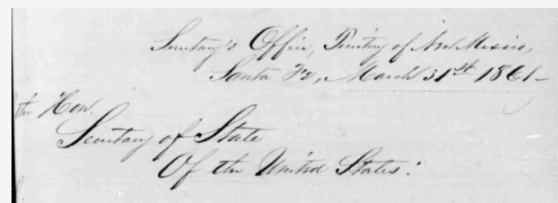 Secretary's Office, Territory of New Mexico,
Santa Fe, March 31st 1861—
the Hon.
Secretary of State
Of the United States: